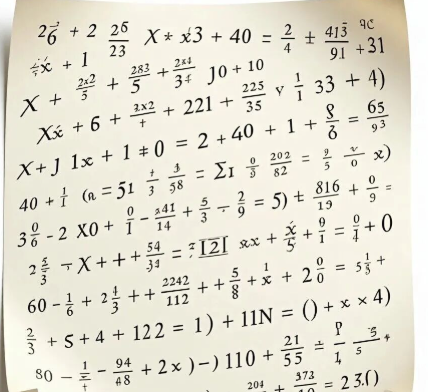 26 + 2 26/23 X * x3 + 40 = 2/4 ± 413/91 + 31
x + 1
X + 2x2/5 + 283/5 + 2x4/34 J0 + 10
Xx + 6 + 2x2/+ + 221 + 225/35 v 1/1 33 + 4)
X + J 1x + 1 ≠ 0 = 2 + 40 + 1 + 8/6 = 65/93
40 + 1/1 (n = 51 +/3 1/58 = Σ1 0/3 202/82 = 9/5 x)
3 0/6 - 2 X0 + 0/1 - 241/14 + 5/3 ÷ 2/9 = 5) ± 816/19 + 0/9 =
2 5/3 ÷ X + + + 54/34 = |2| xx + x/5 + 9/1 = 0/4 + 0
60 - 1/6 + 2 4/3 + + 2242/112 + + 5/8 + 1/x + 2 0/0 = 5 1/3 +
2/3 + 5 + 4 + 122 = 1) + 11N = () + x × 4)
80 - 1/+ - 94/48 + 2x ) - ) 110 + 21/55 ÷ P/4
204 + 373 = 23.()